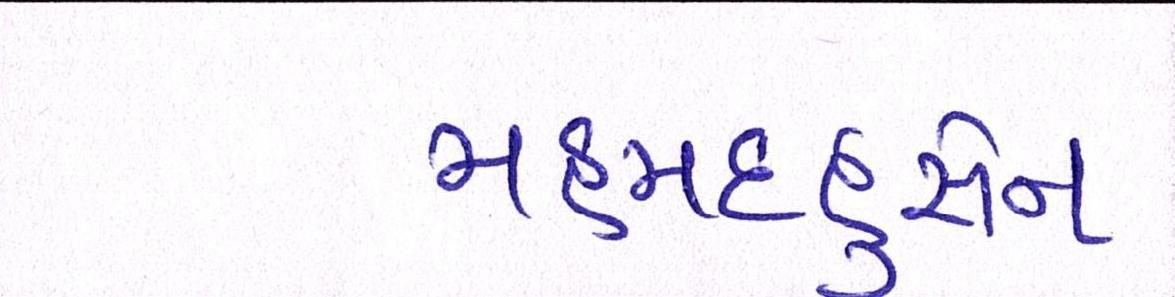 મહમદહુસેન